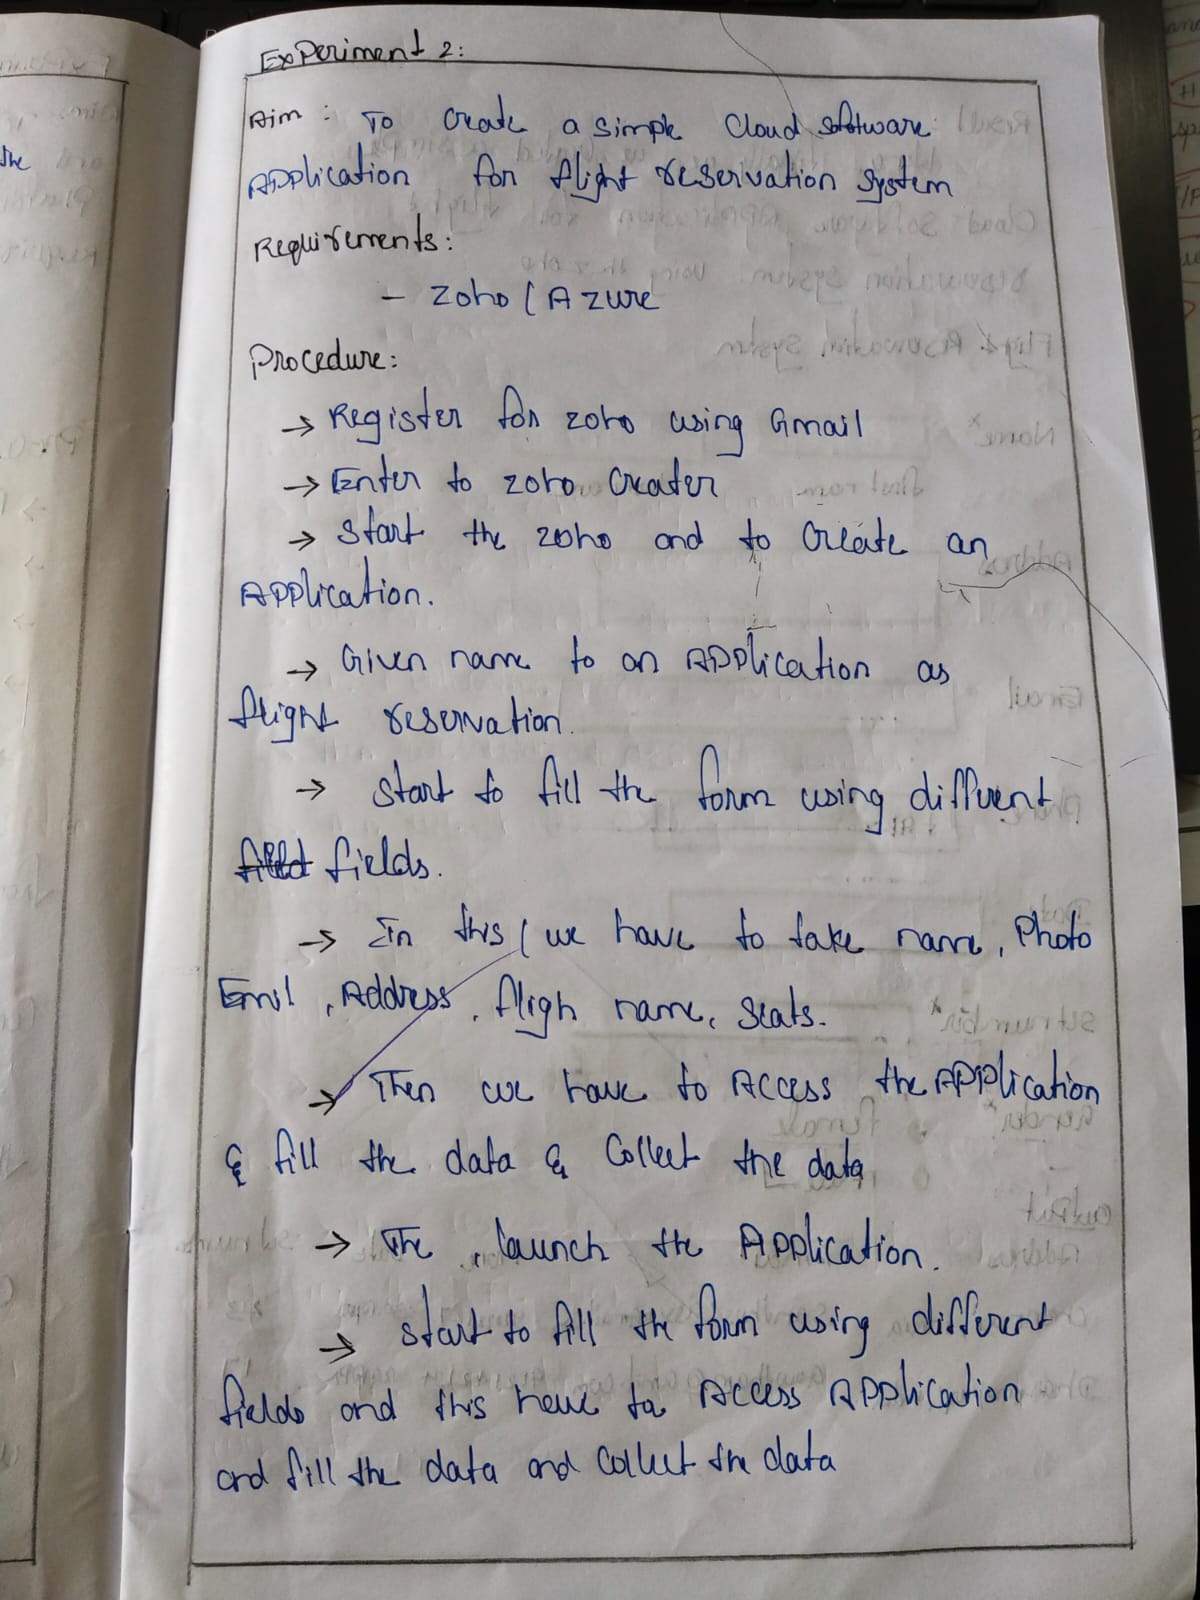 Experiment 2:
Aim : To create a simple cloud software
Application for flight reservation system
Requirements:
- Zoho ( Azure
Procedure:
→ Register for zoho using Gmail
→ Enter to zoho creater
→ Start the zoho and to create an
Application.
→ Given name to an Application as
flight reservation.
→ start to fill the form using different
fields.
→ In this ( we have to take name, Photo
Emil, Address, fligh name, Seats.
→ Then we have to Access the Application
& fill the data & Collect the data
→ The , launch the Application.
→ start to fill the form using different
fields and this have to Access Application
and fill the data and collect the data
the